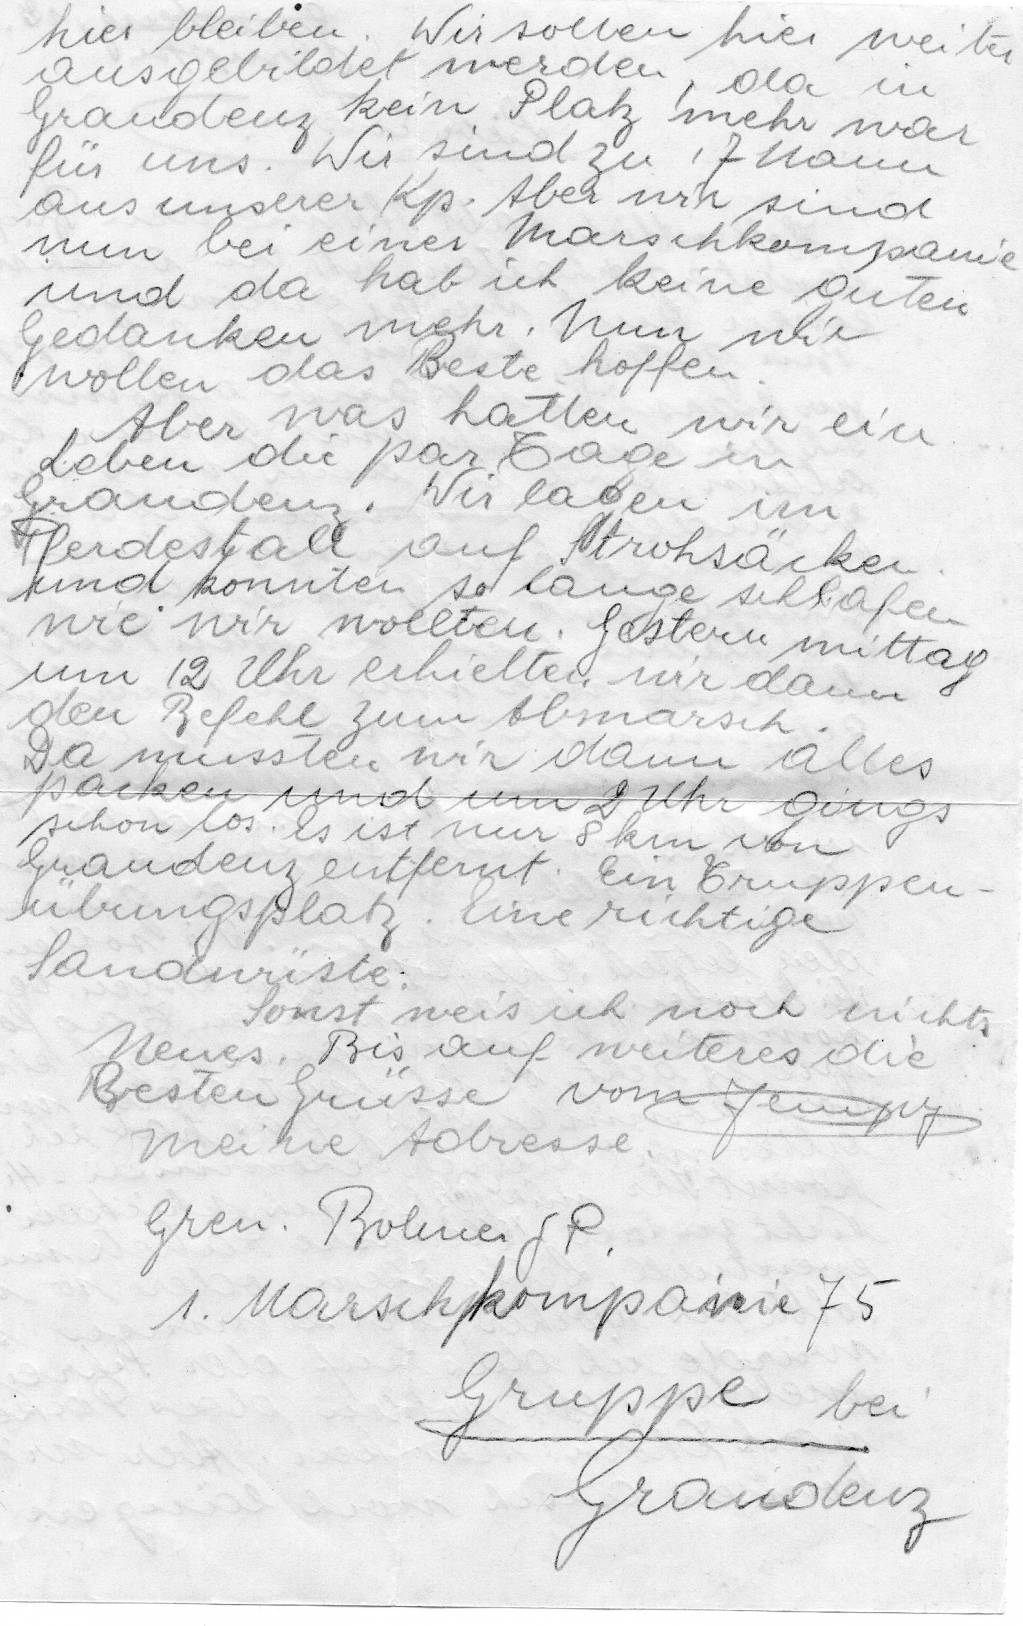 hier bleiben. Wir sollen hier weiter
ausgebildet werden, da in
Graudenz kein Platz mehr war
für uns. Wir sind zu 17 Mann
aus unserer Kp. Aber wir sind
nun bei einer Marschkompanie
und da hab ich keine guten
Gedanken mehr. Nun wir
wollen das Beste hoffen.
Aber was hatten wir ein
Leben die par Tage in
Graudenz. Wir lagen im
Pferdestall auf Strohsäcken
und konnten so lange schlafen
wie wir wollten. Gestern mittag
um 12 Uhr erhielten wir dann
den Befehl zum Abmarsch.
Da mussten wir dann alles
packen und um 2 Uhr gings
schon los. Es ist nur 8 km von
Graudenz entfernt. Ein Truppen-
übungsplatz. Eine richtige
Sandwüste.
Sonst weis ich noch nichts
Neues. Bis auf weiteres die
Besten Grüsse vom Jempy
Meine Adresse.
Gren. J. P.
1. Marschkompanie 75
Gruppe bei
Graudenz